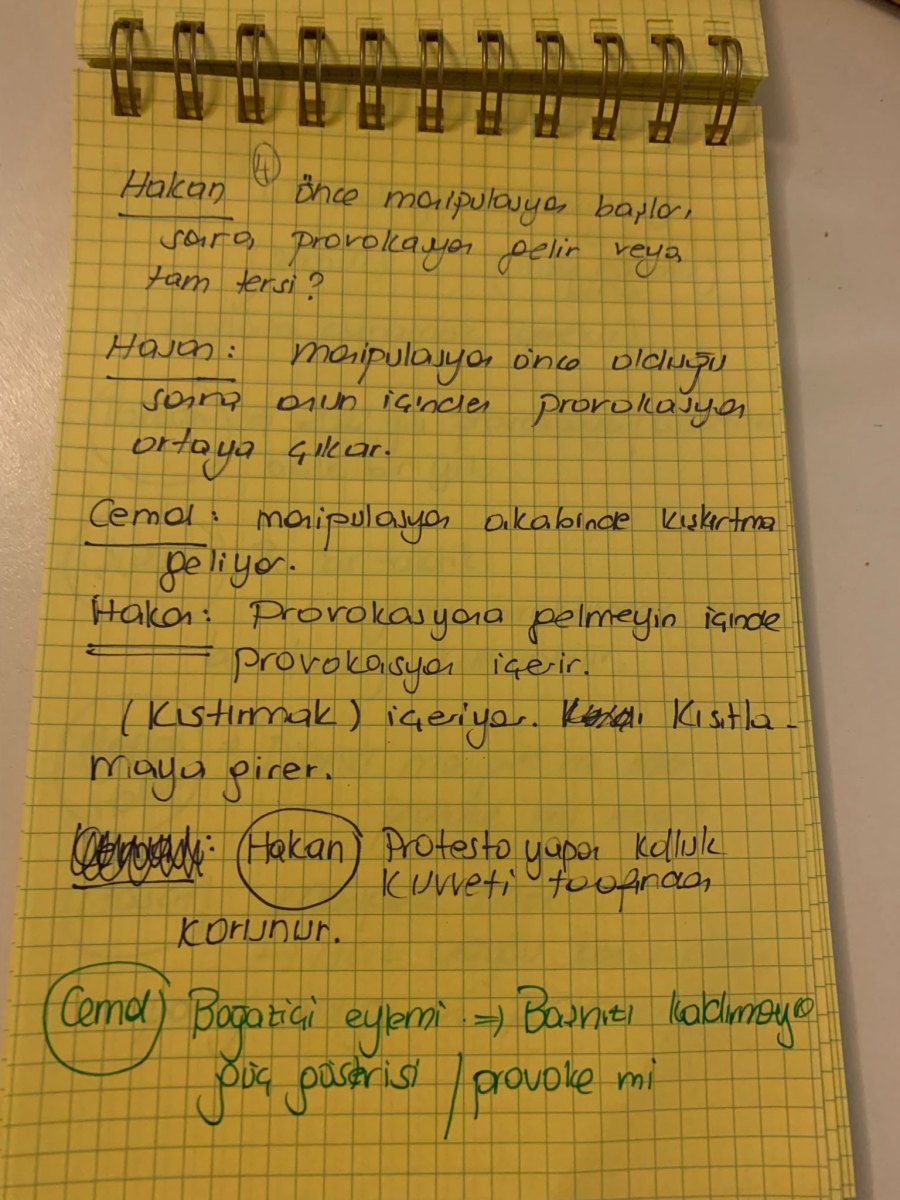 Hakan ④ önce manipulasyon başlar,
sonra, provokasyon gelir veya
tam tersi?
Hasan: manipulasyon önce olduğu
sonra onun içinden provokasyon
ortaya çıkar.
Cemal: manipulasyon akabinde kışkırtma
geliyor.
Hakan: Provokasyona gelmeyin içinde
provokasyon içerir.
(Kıstırmak) içeriyor. Kısıtla-
maya girer.
Hakan Protesto yapan kolluk
kuvveti tarafından
korunur.
Cemal Boğaziçi eylemi => Başınızı kaldırmayın
güç gösterisi / provoke mi